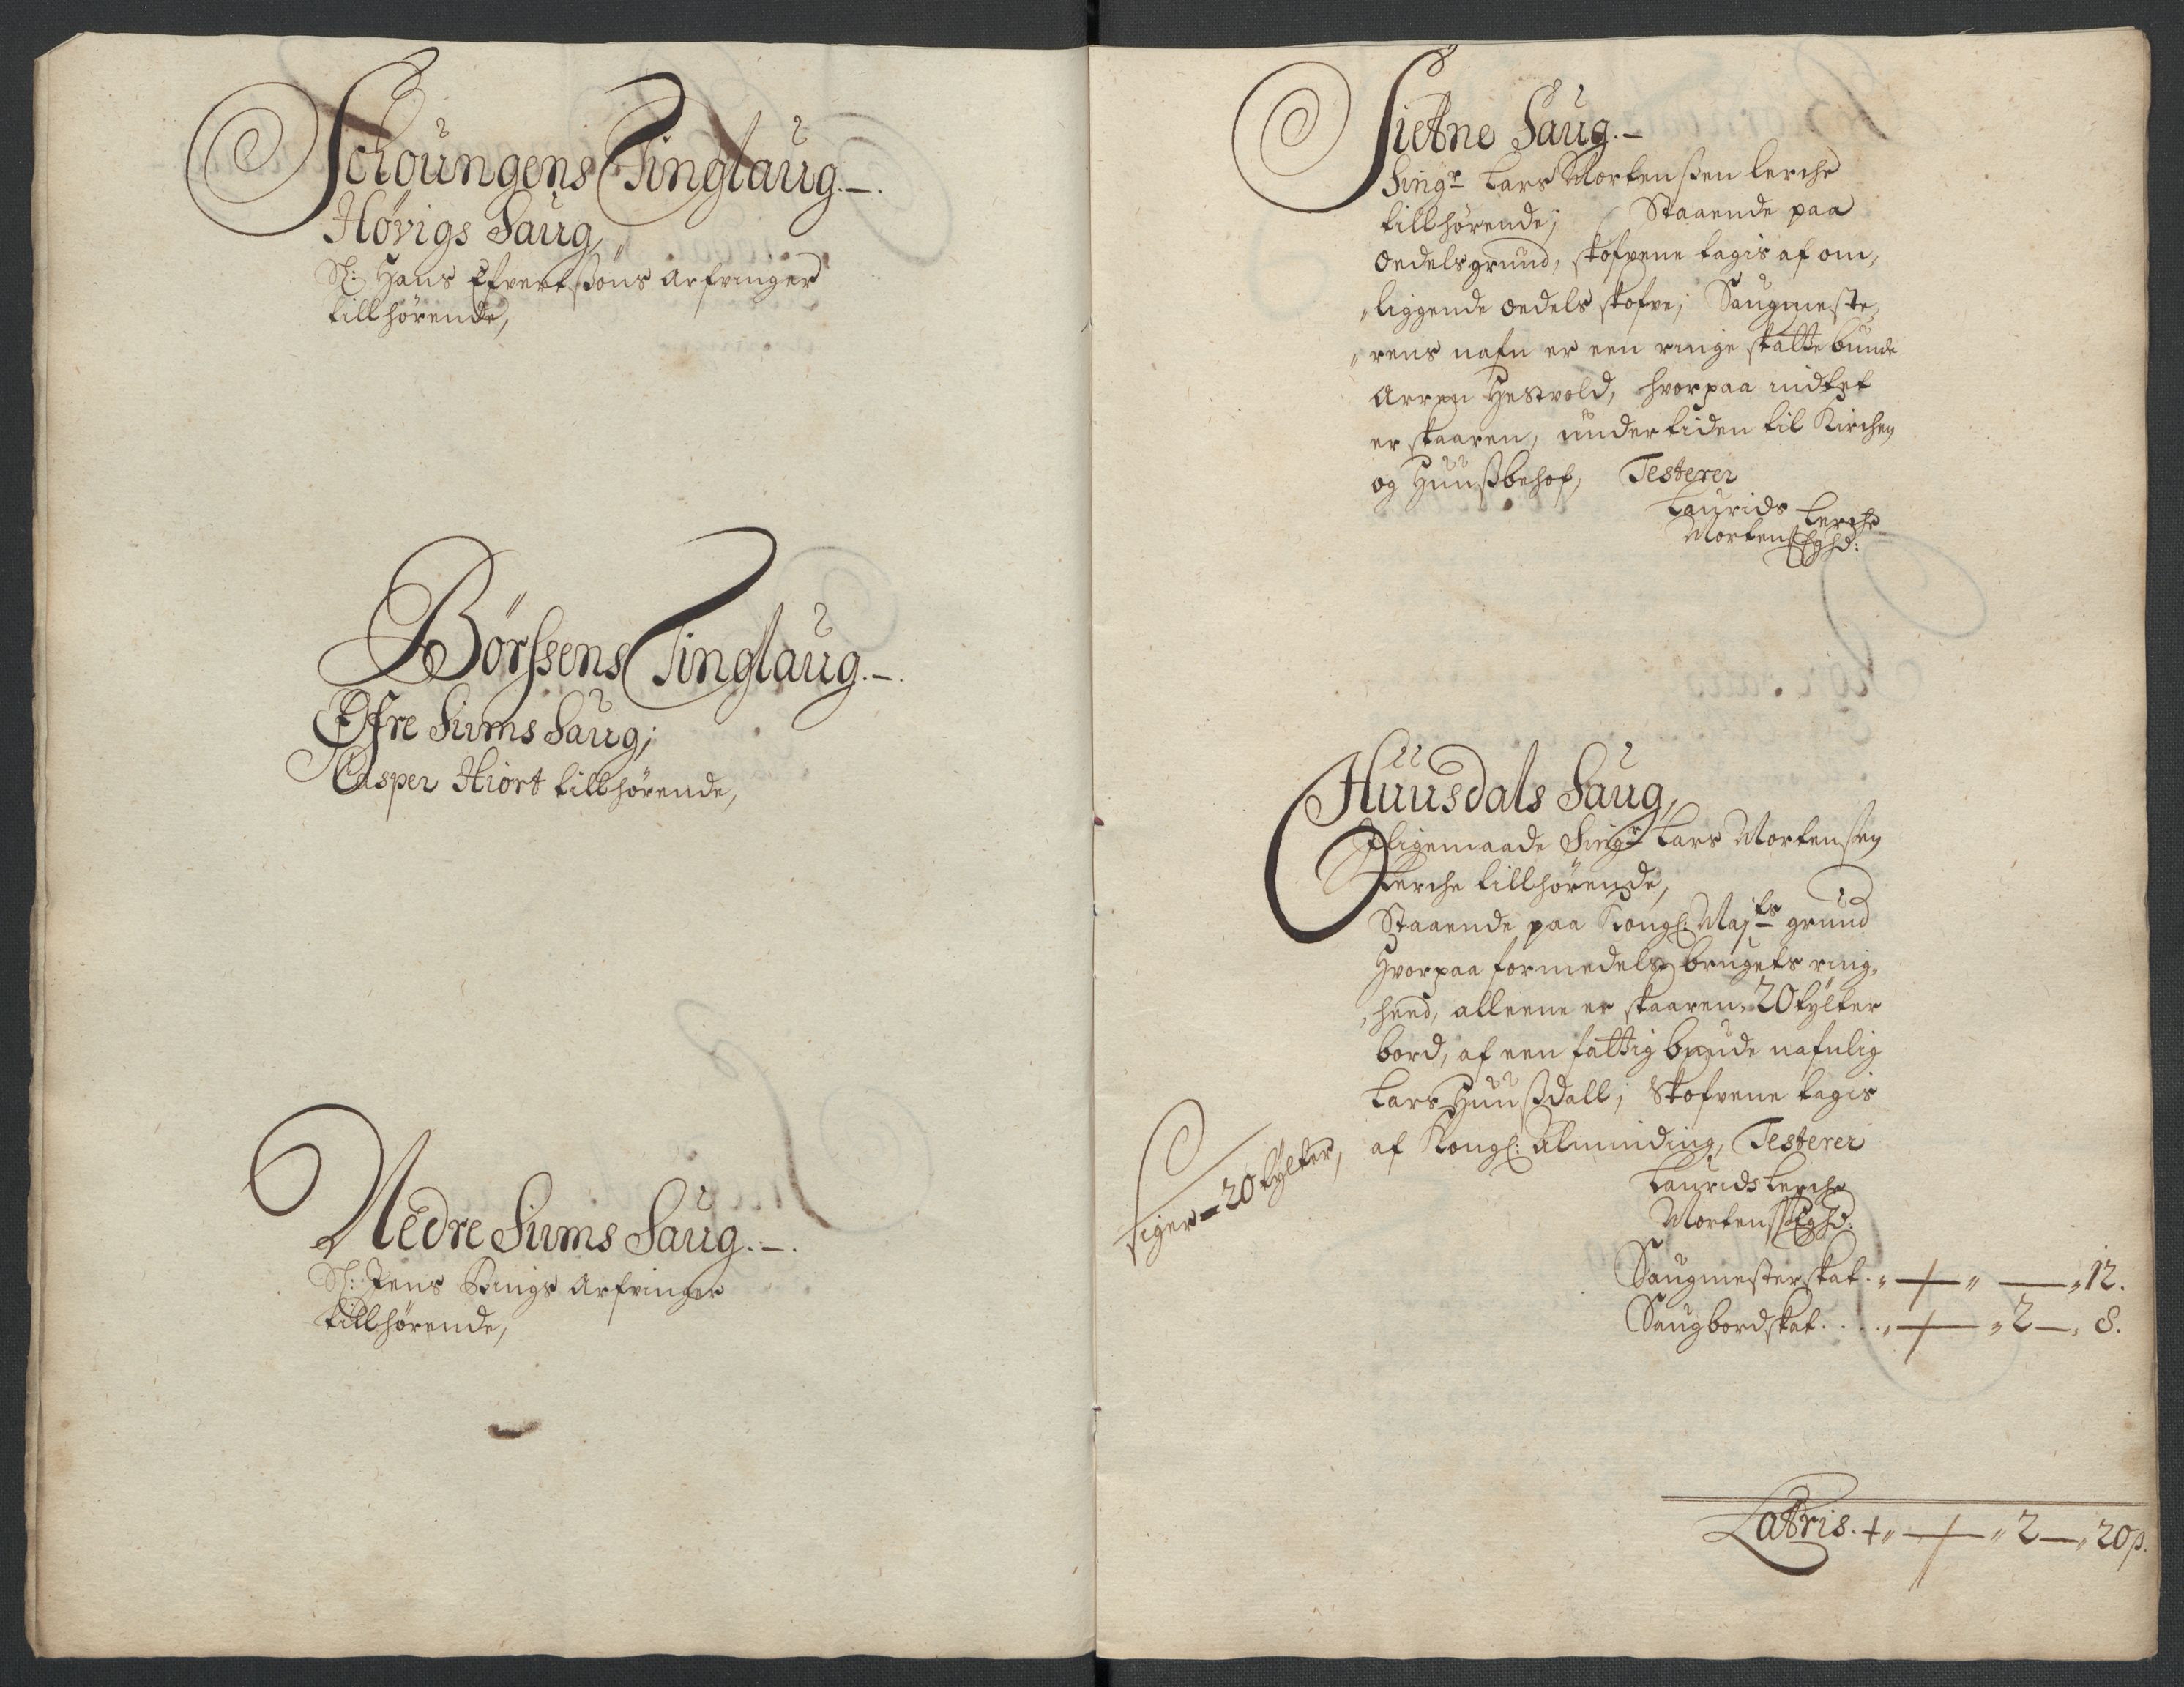 Schoungens Tinglaug.–.
Høvigs Saug,
Sl: Hans Efvertsøns Arfvinger
tillhørende,
Børssens Tinglaug.–.
Øfre Siums Saug;
Casper Hiort tillhørende,
Nedre Siums Saug.–.
Sl: Jens Arfvinger
tillhørende,
Sietne Saug.–
Sing.r Lars Mortenssen Lerche
tillhørende; Staaende paa
Oedelsgrund, skofvene tagis af om,
„liggende Oedels skofve; Saugmeste„
„rens nafn er een ringe skattebunde
Arren Hestvold, hvorpaa indtet
er skaaren, undertiden til Kirchen
og Huussbehof, Testerer
Laurids Lerche
Mortens Eghd:
Huusdals Saug,
Ligemaade Sing.r Lars Mortensen
Lerche tillhørende,
Staaende paa Kongl: Maj.ts grund
Hvorpaa formedelst brugets ring„
„heed, alleene er skaaren 20 tylter
bord, af een fattig bunde nafnlig
Lars Huussdall; Skofvene tagis
af Kongl: Alminding, Testerer
siger – 20 tylter,
Laurids Lerche
Mortens Eghd:
Saugmesterskat. „ – „ – „ 12.
Saugbordskat. . . . „ – „ 2 – „ 8.
Latris. „ – „ 2 – „ 20 β.